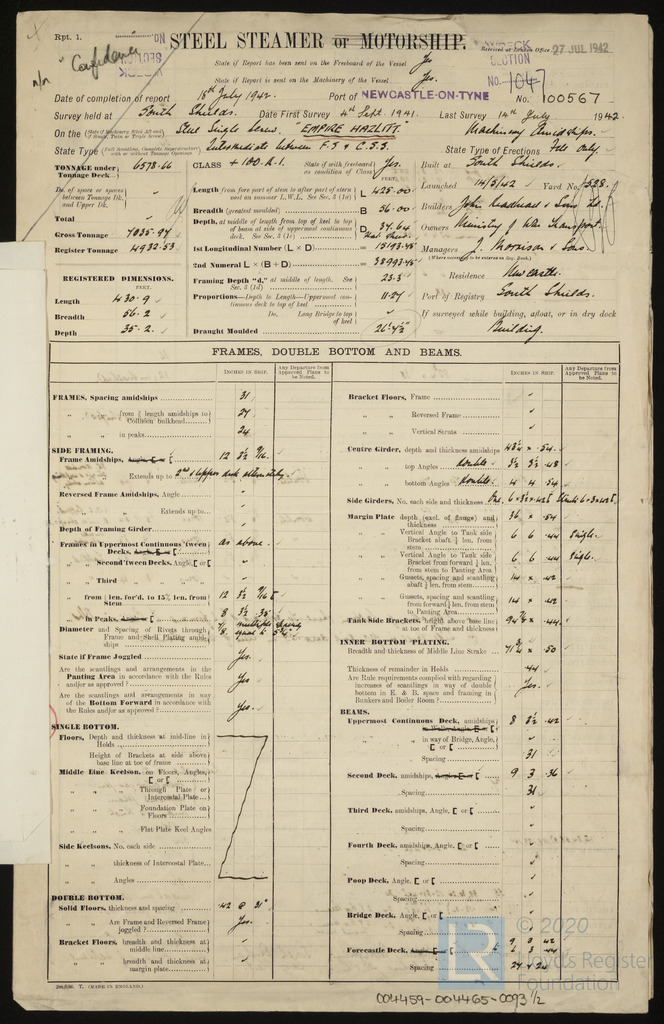 Rpt. 1.
STEEL STEAMER or MOTORSHIP.
Received at London Office 27 JUL 1942
Confidential
WRECK
SECTION
WRECK
SECTION
No. 1047
State if Report has been sent on the Freeboard of the Vessel Yes
State if Report is sent on the Machinery of the Vessel Yes.
Date of completion of report 18th July 1942. Port of NEWCASTLE-ON-TYNE No. 100567
Survey held at South Shields. Date First Survey 4th Sept. 1941. Last Survey 14th July 1942
On the Steel Single Screw, "EMPIRE HAZLITT". Machinery Amidships.
State Type Intermediate between F.S & C.S.S. State Type of Erections Fcle Only.
TONNAGE under Tonnage Deck 6578.66
Do. of space or spaces between Tonnage Dk. and Upper Dk.
Total
Gross Tonnage 7035.94
Register Tonnage 4932.53
CLASS + 100.A.1. State if with freeboard as condition of Class Yes.
FEET.
Length from fore part of stem to after part of stern post on summer L.W.L. See Sec. 3 (1a) L 425.00
Breadth (greatest moulded) B 56.00
Depth, at middle of length from top of keel to top of beam at side of uppermost continuous deck. See Sec. 3 (1c) D
1st Longitudinal Number (L × D)
2nd Numeral L × (B + D)
Framing Depth "d," at middle of length. See Sec. 3 (1d) 23.3
Proportions—Depth to Length—Uppermost continuous deck to top of keel 11.27
Do. Long Bridge to top of keel
Draught Moulded 26' 4½"
Built at South Shields.
Launched 14/5/42 Yard No. 528.
Builders John Readhead & Sons Ltd.
Owners Ministry of War Transport.
Managers J. Morrison & Sons.
(Where necessary to be entered in Reg. Book.)
Residence Newcastle.
Port of Registry South Shields.
If surveyed while building, afloat, or in dry dock
Building.
REGISTERED DIMENSIONS.
FEET.
Length 430.9
Breadth 56.2
Depth 35.2.
FRAMES, DOUBLE BOTTOM AND BEAMS.
INCHES IN SHIP. Any Departure from Approved Plans to be Noted.
FRAMES, Spacing amidships 31
" " from ⅗ length amidships to Collision bulkhead 27
" " in peaks 24
SIDE FRAMING.
Frame Amidships, Angle, E or [ 12 3½
" " Extends up to 2nd & Upper deck alternately.
Reversed Frame Amidships, Angle
" " Extends up to
Depth of Framing Girder
Frames in Uppermost Continuous 'tween Decks, Angle, E or [ as above.
" Second 'tween Decks, Angle, [ or [
" Third " " "
" from ⅗ len. for'd. to 15% len. from Stem 12 3½
" in Peaks, Angle or [ 8 3½ .35
Diameter and Spacing of Rivets through Frame and Shell Plating amidships
State if Frame Joggled Yes.
Are the scantlings and arrangements in the Panting Area in accordance with the Rules and/or as approved? Yes
Are the scantlings and arrangements in way of the Bottom Forward in accordance with the Rules and/or as approved? Yes.
SINGLE BOTTOM.
Floors, Depth and thickness at mid-line in Holds
Height of Brackets at side above base line at toe of frame
Middle Line Keelson, on Floors, Angles, [ or [
" " Through Plate or Intercostal Plate
" " Foundation Plate on Floors
" " Flat Plate Keel Angles
Side Keelsons, No. each side
" " thickness of Intercostal Plate
" " Angles
DOUBLE BOTTOM.
Solid Floors, thickness and spacing .42 @ 31"
" " Are Frame and Reversed Frame joggled? Yes.
Bracket Floors, breadth and thickness at middle line
" " breadth and thickness at margin plate
Bracket Floors, Frame
" " Reversed Frame
" " Vertical Struts
Centre Girder, depth and thickness amidships 43½ × .54
" " top Angles double 3½ 3½ .48
" " bottom Angles double 4 4 .54
Side Girders, No. each side and thickness One.
Margin Plate depth (excl. of flange) and thickness 36 × .54
" " Vertical Angle to Tank side Bracket abaft ¼ len. from stem 6 6 .44 Single.
" " Vertical Angle to Tank side Bracket from forward ¼ len. from stem to Panting Area 6 6 .44 Single.
" " Gussets, spacing and scantling abaft ¼ len. from stem
" " Gussets, spacing and scantling from forward ¼ len. from stem to Panting Area
Tank Side Brackets, height above base line at toe of Frame and thickness
INNER BOTTOM PLATING.
Breadth and thickness of Middle Line Strake 71¾ × .50
Thickness of remainder in Holds .44
Are Rule requirements complied with regarding increases of scantlings in way of double bottom in E. & B. space and framing in Bunkers and Boiler Room? Yes.
BEAMS.
Uppermost Continuous Deck, amidships 8 3½ .42
" " in way of Bridge, Angle, [ or [
Spacing 31
Second Deck, amidships, Angle, E or [ 9 3 .36
Spacing 31
Third Deck, amidships, Angle, [ or [
Spacing
Fourth Deck, amidships, Angle, [ or [
Spacing
Poop Deck, Angle, [ or [
Spacing
Bridge Deck, Angle, [ or [
Spacing
Forecastle Deck, Angle, E or [
Spacing 27 & 24
(MADE IN ENGLAND.)
004459-004465-0093 1/2
LR
© 2020
Lloyd's Register
Foundation